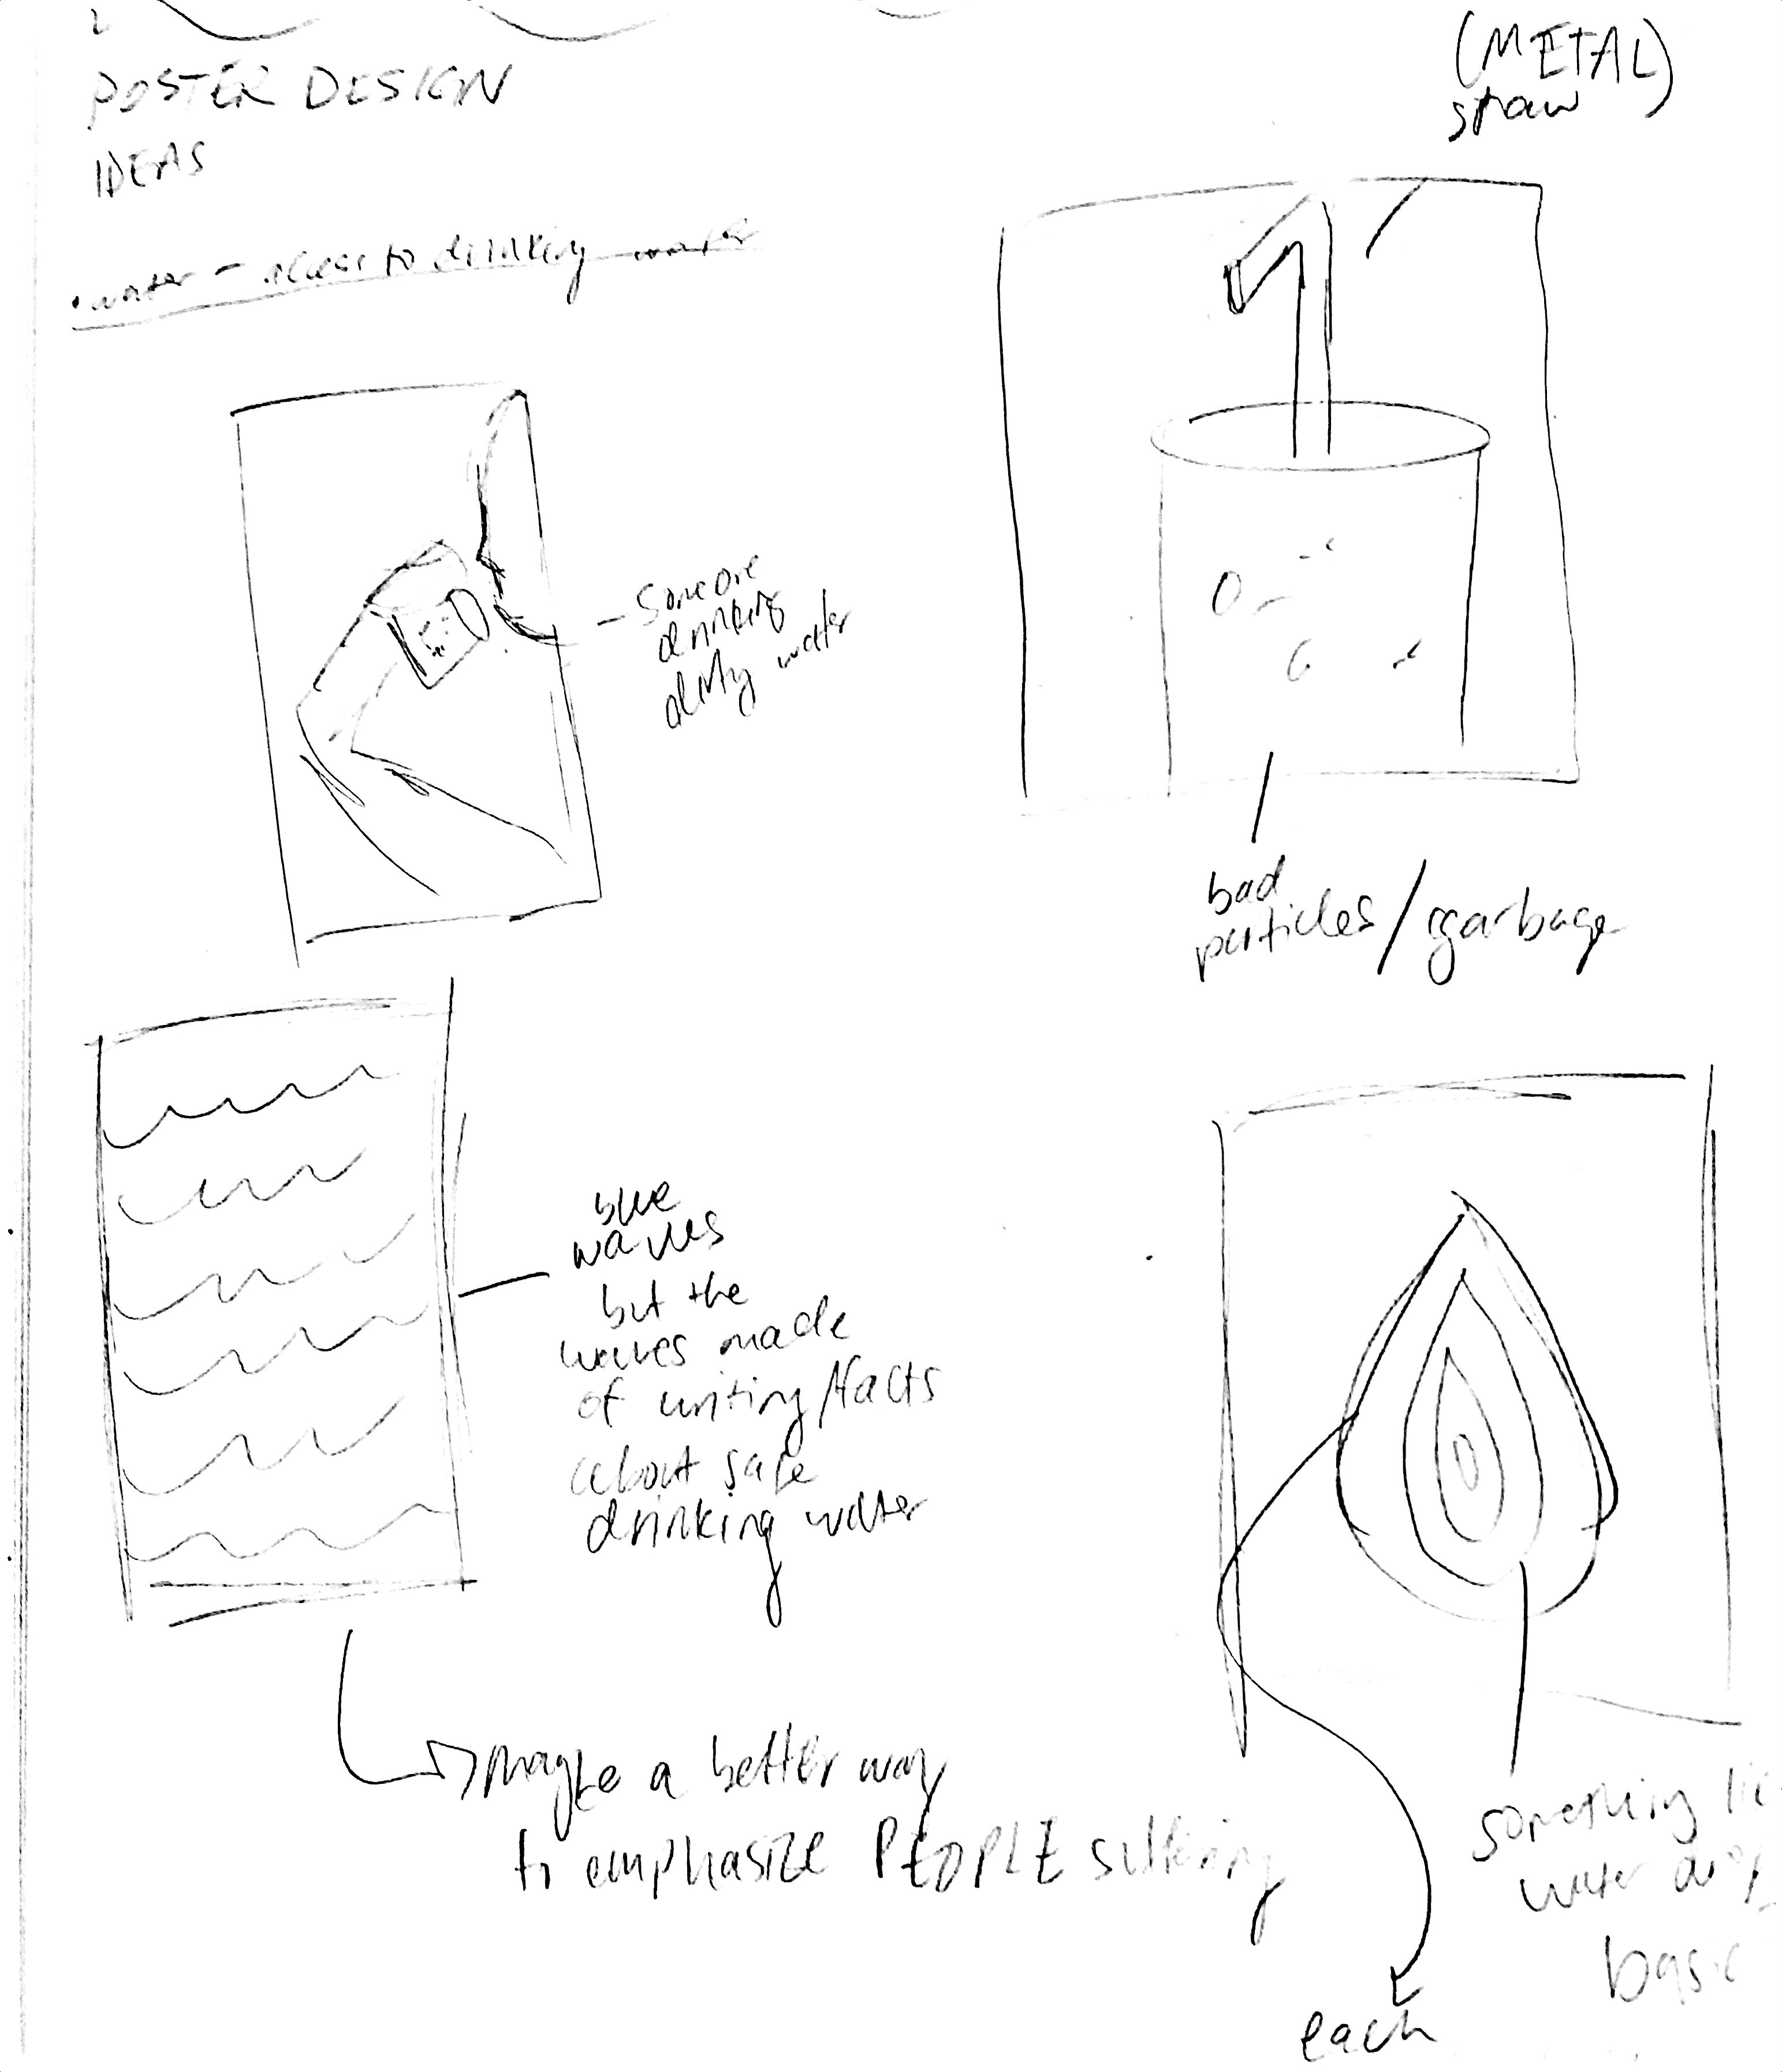 POSTER DESIGN
IDEAS
• water - access to drinking water
(METAL)
straw
- Someone
drinking
dirty water
bad
particles/garbage
blue
waves
but the
waves made
of writing/facts
about safe
drinking water
maybe a better way
to emphasize PEOPLE suffering
something
water
basic
each